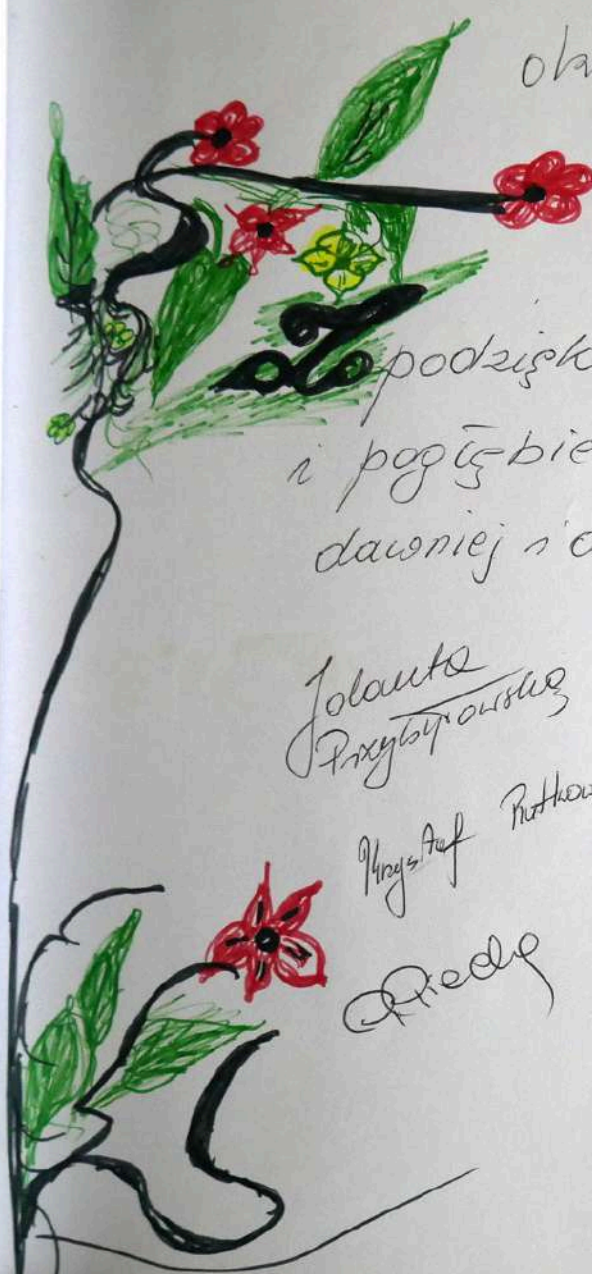 Z podzięk
i pogłębie
dawniej i o
Jolanta
Przybyrowska
Krzysztof Rutkow